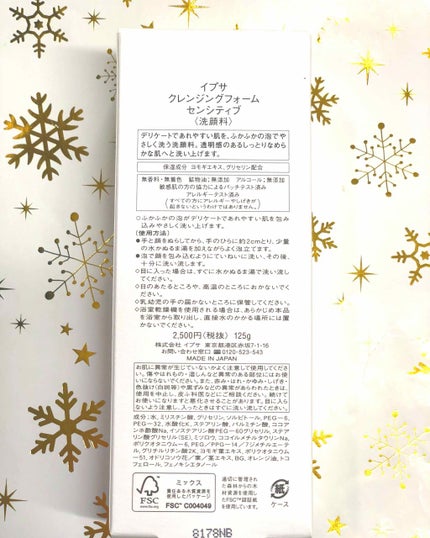 イプサ
クレンジングフォーム
センシティブ
〈洗顔料〉
デリケートであれやすい肌を、ふかふかの泡でや
さしく洗う洗顔料。透明感のあるしっとりなめら
かな肌へと洗い上げます。
保湿成分 ヨモギエキス、グリセリン配合
無香料・無着色 鉱物油;無添加 アルコール;無添加
敏感肌の方の協力によるパッチテスト済み
アレルギーテスト済み
(すべての方にアレルギーやしげきが
起きないというわけではありません。)
○ふかふかの泡がデリケートであれやすい肌を包み
込みやさしく洗い上げます。
〈使用方法〉
●手と顔をぬらしてから、手のひらに約2cmとり、少量
の水かぬるま湯を加えながらよく泡立てます。
●泡で顔を包み込むようにていねいに洗い、その後、
十分に洗い流します。
○目に入った場合は、すぐに水かぬるま湯で洗い流し
てください。
○日のあたるところや、高温のところにおかないでく
ださい。
○乳幼児の手の届かないところに保管してください。
○浴室乾燥機を使用される場合は、あらかじめ本品
を浴室から取り出し、直接水のかかる場所には置
かないでください。
2,500円〈税抜〉 125g
株式会社 イプサ 東京都港区赤坂7-1-16
お問い合わせ窓口 0120-523-543
MADE IN JAPAN
お肌に異常が生じていないかよく注意して使用してくださ
い。傷やはれもの・湿しんなど異常のある部位にはお使
いにならないでください。また、赤み・はれ・かゆみ・しげき・
色抜け(白斑等)や黒ずみなどの異常があらわれたときは、
使用を中止し、皮ふ科医などにご相談ください。続けて
お使いになりますと悪化させることがあります。目に入ら
ないよう注意し、入ったときはすぐに洗い流してください。
成分:水、ミリスチン酸、グリセリン、ソルビトール、PEG-6、
PEG-32、水酸化K、ステアリン酸、パルミチン酸、ココア
ンホ酢酸Na、イソステアリン酸PEG-60グリセリル、ステア
リン酸グリセリル(SE)、ミツロウ、ココイルメチルタウリンNa、
ポリクオタニウム-6、PEG/PPG-14/7ジメチルエーテ
ル、グリチルリチン酸2K、ヨモギ葉エキス、ポリクオタニウ
ム-51、オドリコソウ花/葉/茎エキス、BG、オレンジ油、トコ
フェロール、フェノキシエタノール
FSC
www.fsc.org
ミックス
責任ある木質資源を
使用したパッケージ
FSC® C004049
適切に管理され
た森林からの木
材資源を使用し
たFSC®認証紙
を使っています。
紙
ケース
8178NB